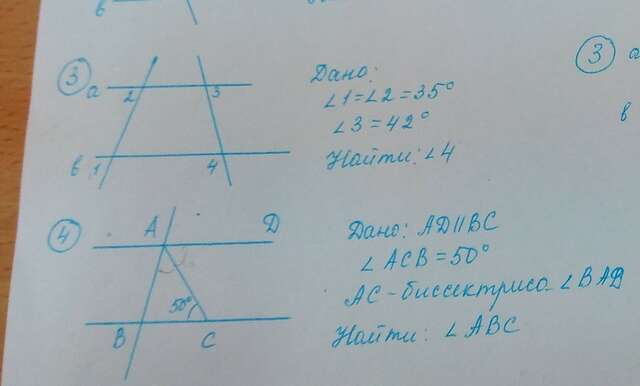 в
③ а 2 3 Дано:
∠1=∠2=35°
∠3=42°
в 1 4 Найти: ∠4
③ а
в
④ A D Дано: AD||BC
∠ACB=50°
50° AC-биссектриса ∠BAD
B C Найти: ∠ABC